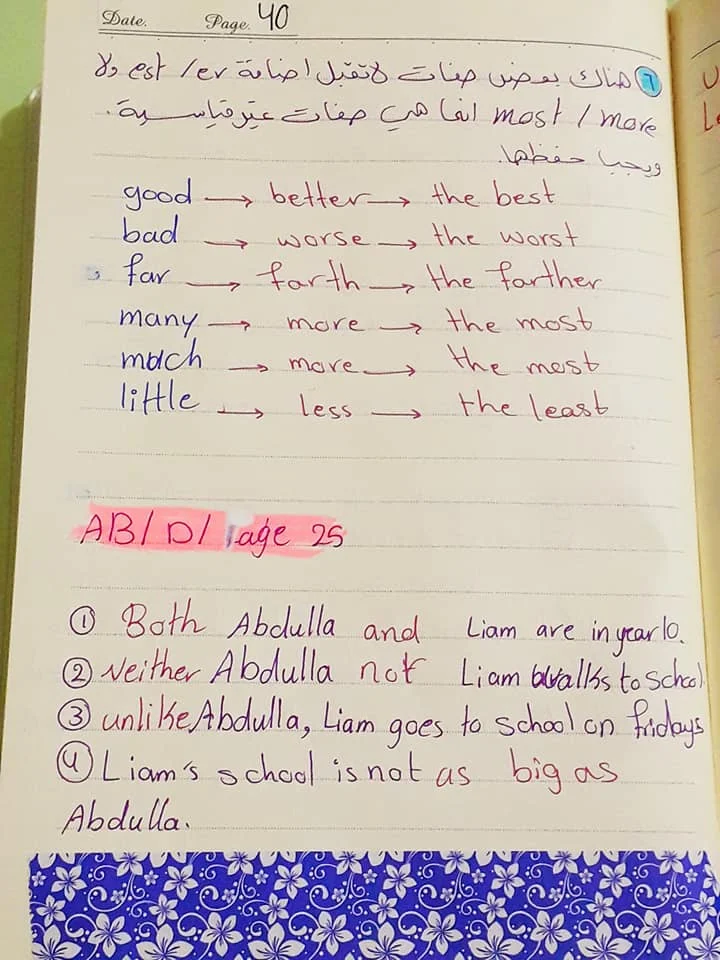 Date. Page. 40
٦ هناك بعض صفات لا تقبل اضافة est /er ولا
most / more انما هي صفات غير قياسية.
ويجب حفظها.
good → better → the best
bad → worse → the worst
far → farth → the farther
many → more → the most
much → more → the most
little → less → the least
AB/ D/ age 25
① Both Abdulla and Liam are in year 10.
② Neither Abdulla not Liam walks to school
③ unlike Abdulla, Liam goes to school on fridays
④ Liam's school is not as big as
Abdulla.